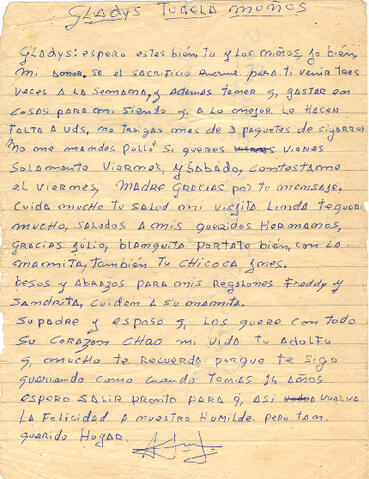 GLADYS TUDELA MUÑOS
GLADYS: espero estes bien, tu y los niños, yo bien,
mi amor, se el sacrificio enorme para ti venir tres
veces a la semana, y ademas tener q, gastar en
cosas para mi siendo q, a lo mejor Le Hacen
FALTA A Uds, no traigas mas de 3 paquetes de sigarros
"no me mandes pollo" Si queres vienes
Solamente Viernes, y Sabado, Contestame
el Viernes, Madre Gracias por tu mensaje,
cuida mucho tu Salud mi viejita Linda te quero
mucho, Saludos a mis queridos Hermanos,
Gracias Julio, blanquita portate bien, con la
mamita, tambien tu Chicoca Ines.
besos y Abrazos para mis Regalones Freddy y
Sandrita, cuiden a su mamita.
Su padre y esposo q, los quere con todo
Su Corazon Chao mi vida tu Adolfo
q, mucho te Recuerda porque te sigo
queriendo como cuando tenias 16 años
espero salir pronto para q, asi vuelva
la Felicidad a nuestro Humilde, pero tan
querido Hogar.